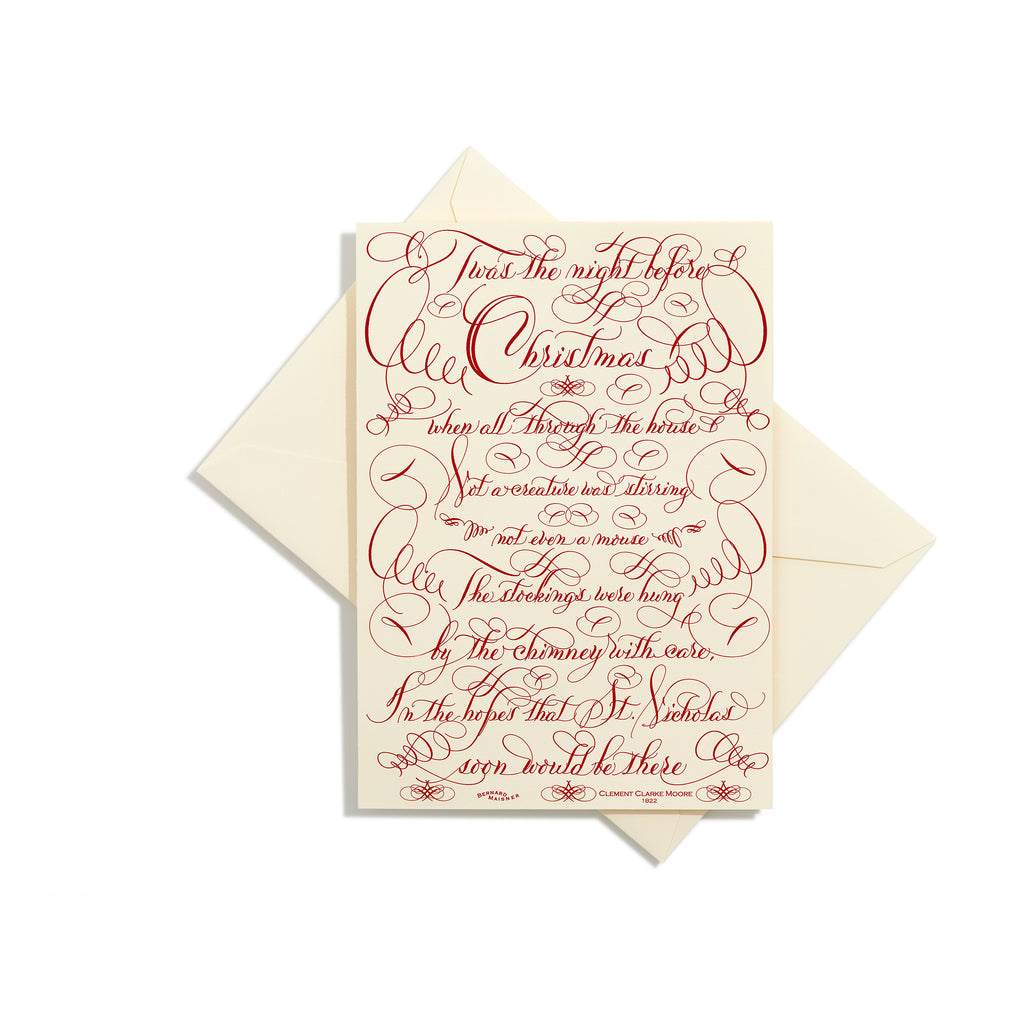 'Twas the night before
Christmas
when all through the house
Not a creature was stirring
not even a mouse
The stockings were hung
by the chimney with care,
In the hopes that St. Nicholas
soon would be there
BERNARD MAISNER
CLEMENT CLARKE MOORE
1822